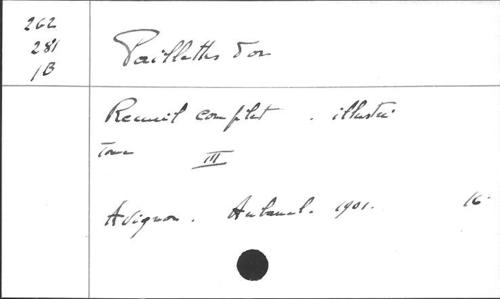 262
281
1B
Paillettes d'or
Recueil complet . illustré
Tome
III
Avignon. Aubanel. 1901. 16